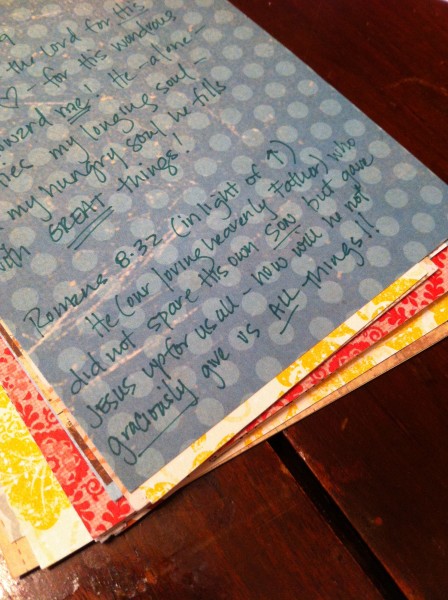 9
the Lord for His
♡ - for His wondrous
toward me! He alone -
my longing soul -
my hungry soul he fills
with GREAT things!
Romans 8:32 (in light of ↑)
He (our loving heavenly Father) who
did not spare His own Son but gave
Jesus up for us all - how will he not
graciously give us All things!!